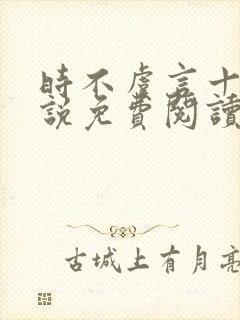 時不虞言十
說免費閱讀
古城上有月亮